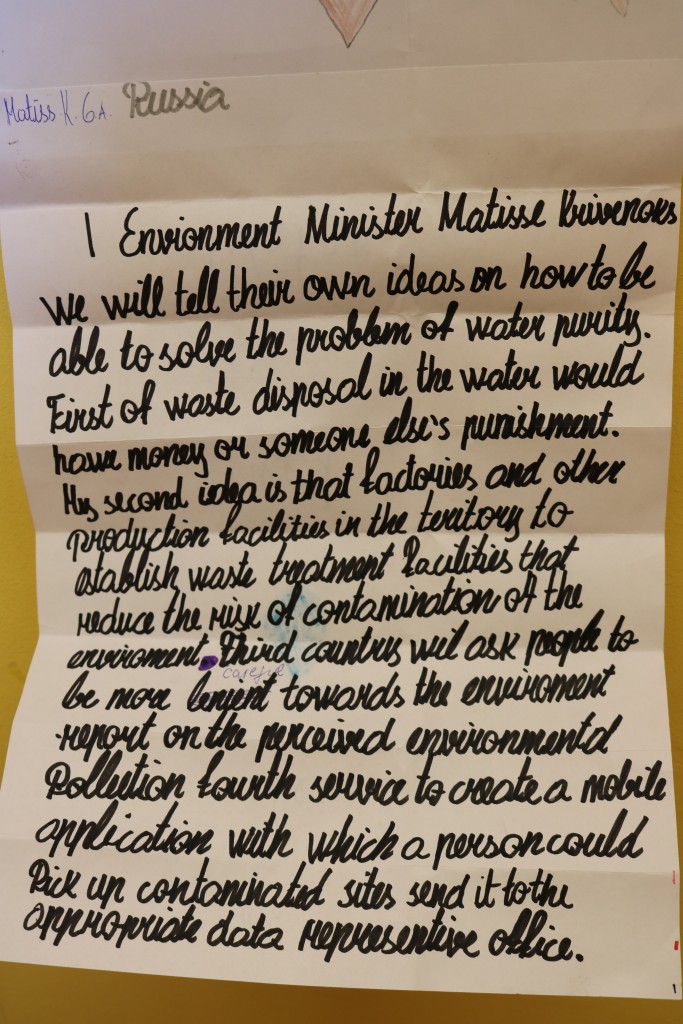 Matiss K. 6.A. Russia
I Envionment Minister Matisse Krivenoks
We will tell their own ideas on how to be
able to solve the problem of water purity.
First of waste disposal in the water would
have money or someone else's punishment.
My second idea is that factories and other
production facilities in the territory to
establish waste treatment facilities that
reduce the risk of contamination of the
enviroment. Third countrys wil ask people to
careful
be more lenient towards the enviroment
report on the perceived environmental
Pollution fourth service to create a mobile
application with which a person could
Pick up contaminated sites send it to the
appropriate data representive office.